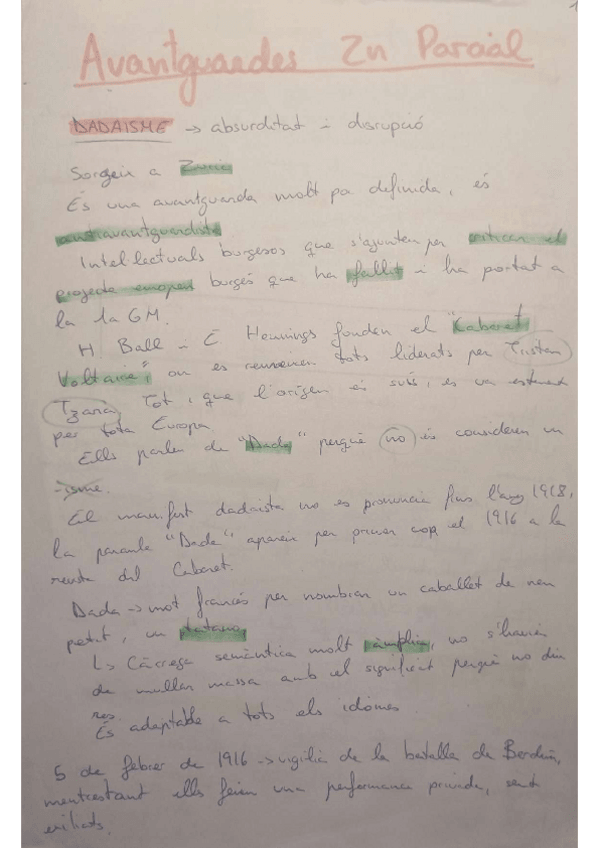 1
Avantguardes 2n Parcial
DADAISME → absurditat i disrupció
Sorgeix a Zuric
És una avantguarda molt poc definida, és
antiavantguardista
Intel·lectuals burgesos que s'ajunten per criticar el
projecte europeu burgès que ha fallit i ha portat a
la 1a GM.
H. Ball i E. Hennings funden el "Cabaret
Voltaire", on es reuneixen tots liderats per Tristan
Tzara. Tot i que l'origen és suís, es va estenent
per tota Europa
Ells parlen de "Dada" perquè no es consideren un
-isme.
El manifest dadaista no es pronuncia fins l'any 1918,
la paraula "Dada" apareix per primer cop el 1916 a la
revista del Cabaret.
Dada → mot francés per nombrar un caballet de nen
petit, un tatano
↳ Càrrega semàntica molt àmplia, no s'hauria
de mullar massa amb el significat perquè no diu
res.
És adaptable a tots els idiomes.
5 de febrer de 1916 → vigília de la batalla de Berdún,
mentrestant ells feien una performance privada, sent
exiliats.